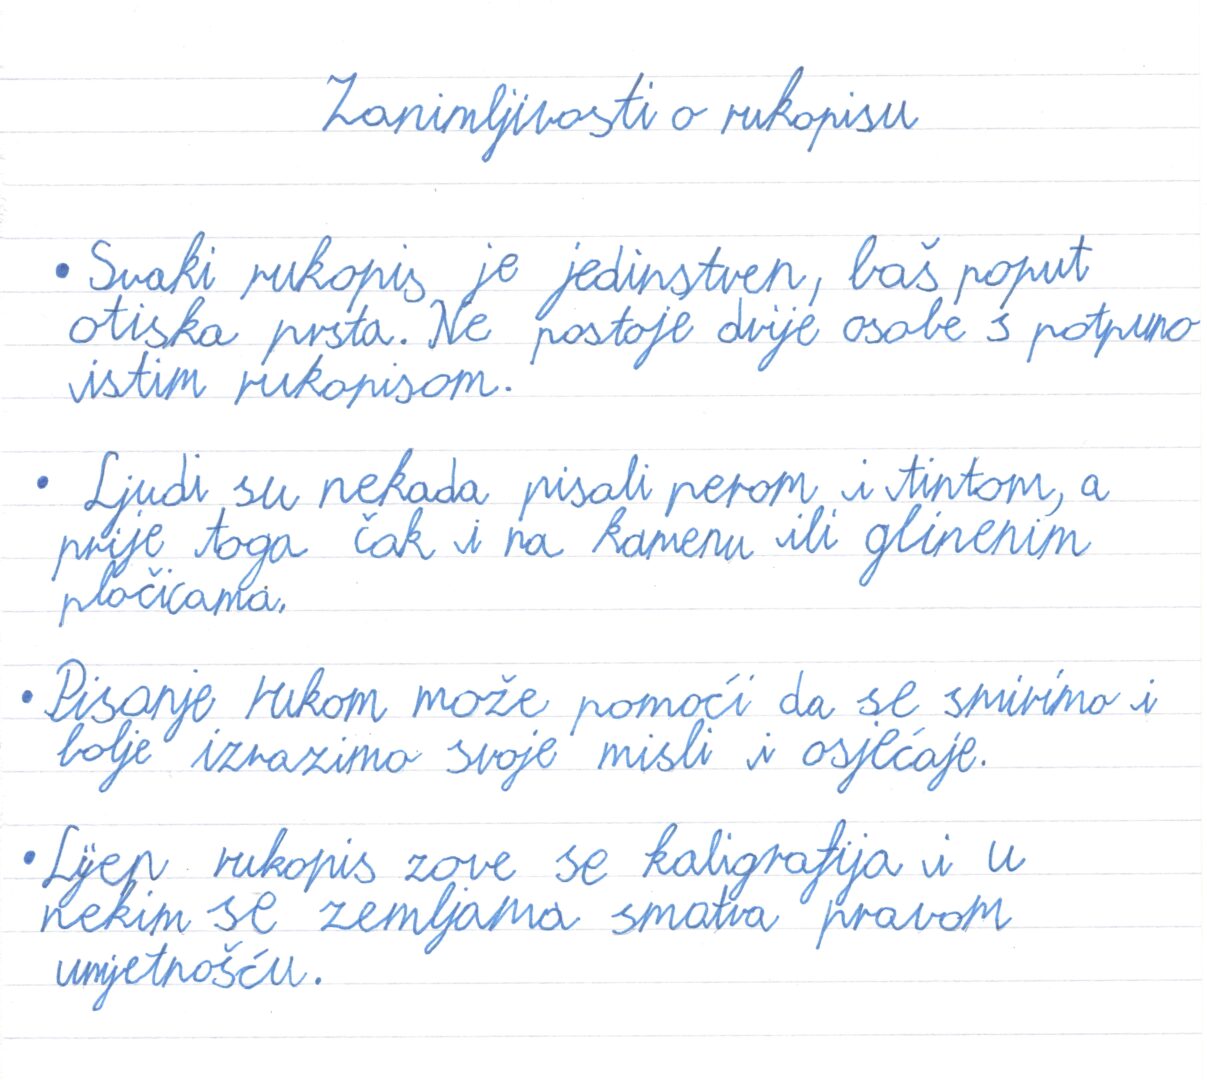 Zanimljivosti o rukopisu
• Svaki rukopis je jedinstven, baš poput
otiska prsta. Ne postoje dvije osobe s potpuno
istim rukopisom.
• Ljudi su nekada pisali perom i tintom, a
prije toga čak i na kamenu ili glinenim
pločicama.
• Pisanje rukom može pomoći da se smirimo i
bolje izrazimo svoje misli i osjećaje.
• Lijep rukopis zove se kaligrafija i u
nekim se zemljama smatra pravom
umjetnošću.